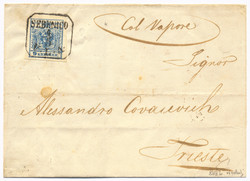 SEBENICO
Col Vapore
Signor
Alessandro Covacevich
Trieste